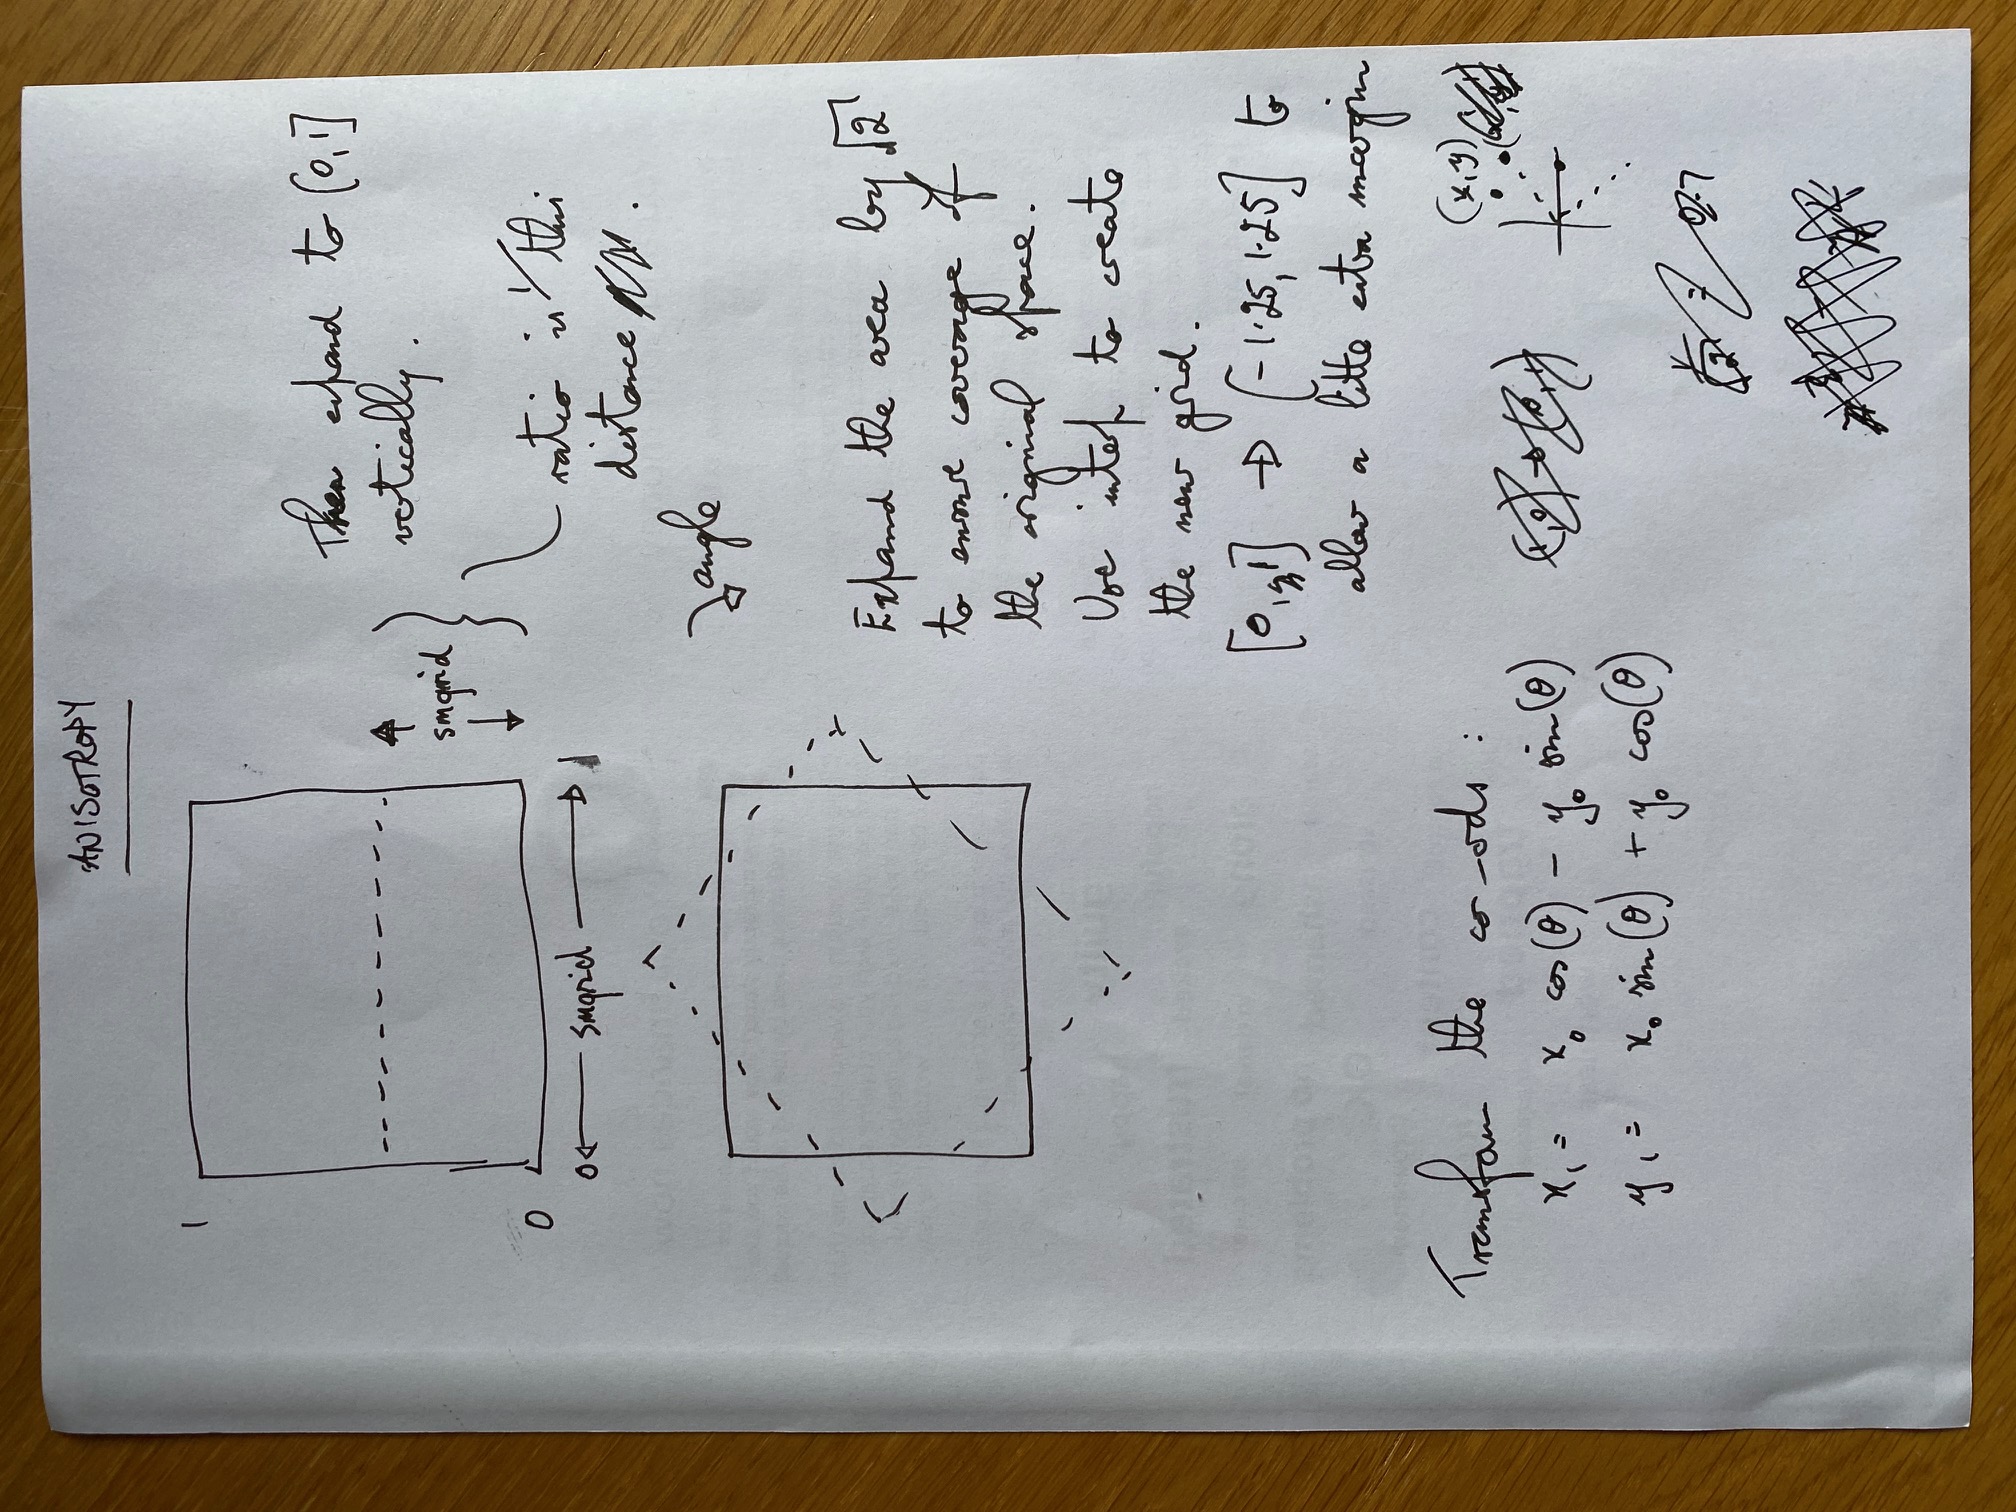 ANISOTROPY
1
Then expand to [0,1]
vertically.
smgrid
ratio is 1/this
distance .
0
0 smgrid 1
angle
Expand the area by √2
to ensure coverage of
the original space.
Use interp to create
the new grid.
[0, 1] → [-1.25, 1.25] to
allow a litte extra margin
Transform the co-ords :
(x,y)
x₁ = x₀ cos(θ) - y₀ sin(θ)
y₁ = x₀ sin(θ) + y₀ cos(θ)